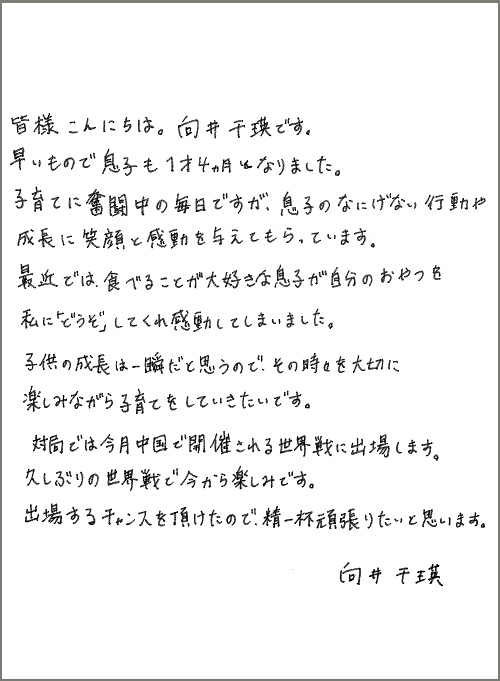 皆様こんにちは。向井千瑛です。
早いもので息子も1才4ヵ月となりました。
子育てに奮闘中の毎日ですが、息子のなにげない行動や
成長に笑顔と感動を与えてもらっています。
最近では、食べることが大好きな息子が自分のおやつを
私に「どうぞ」してくれ感動してしまいました。
子供の成長は一瞬だと思うので、その時々を大切に
楽しみながら子育てをしていきたいです。
対局では今月中国で開催される世界戦に出場します。
久しぶりの世界戦で今から楽しみです。
出場するチャンスを頂けたので、精一杯頑張りたいと思います。
向井千瑛